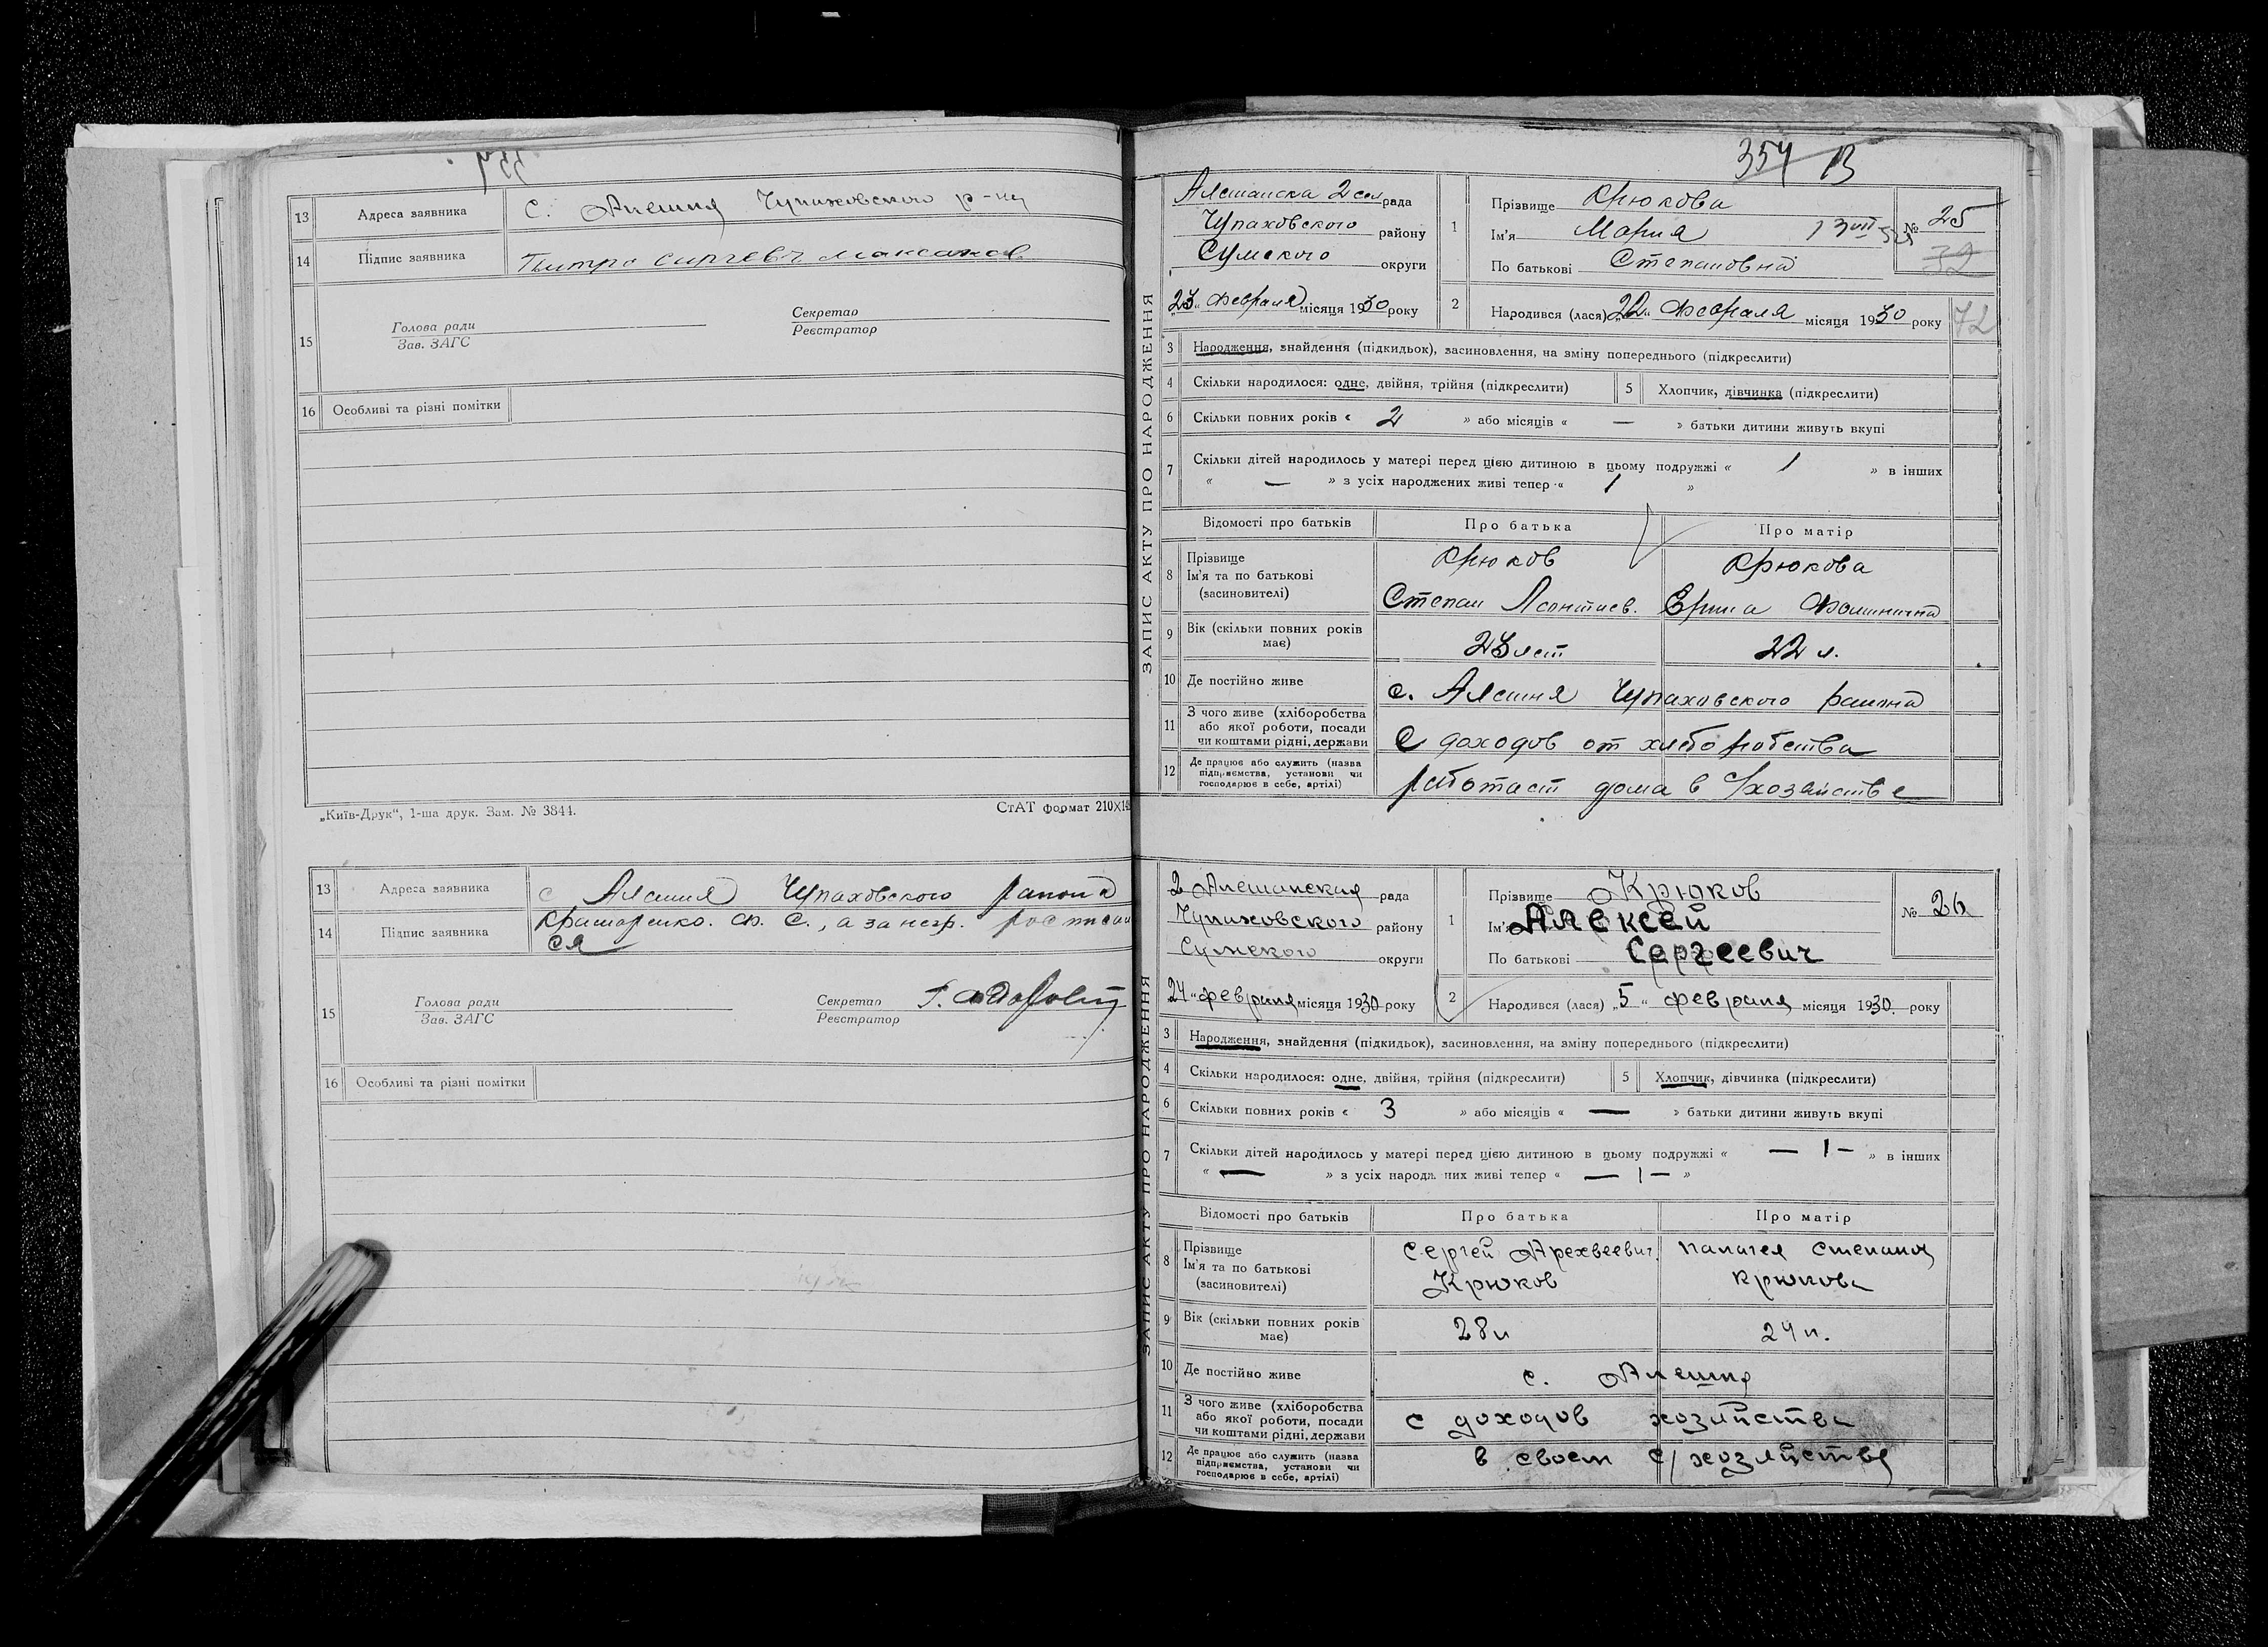 13 Адреса заявника с. Алешня Чупаховского р-ну
14 Підпис заявника
15 Голова ради Секретар
Зав. ЗАГС Реєстратор
16 Особливі та різні помітки
„Київ-Друк“, 1-ша друк. Зам. № 3844.
СтАТ формат 210×14
13 Адреса заявника с Алешня Чупаховского района
14 Підпис заявника
ся
15 Голова ради Секретар
Зав. ЗАГС Реєстратор
16 Особливі та різні помітки
354 13
ЗАПИС АКТУ ПРО НАРОДЖЕННЯ
Алешанска 2 сел рада
Чупаховского району
Сумского округи
„23„ февраля місяця 1930 року
1 Прізвище Крюкова
Ім'я Мария
По батькові Степановна
№ 25
32
2 Народився (лася) „22„ Февраля місяця 1930 року 72
3 Народження, знайдення (підкидьок), засиновлення, на зміну попереднього (підкреслити)
4 Скільки народилося: одне, двійня, трійня (підкреслити) 5 Хлопчик, дівчинка (підкреслити)
6 Скільки повних років « 2 » або місяців « — » батьки дитини живуть вкупі
7 Скільки дітей народилось у матері перед цією дитиною в цьому подружжі « 1 » в інших
« — » з усіх народжених живі тепер « 1 »
Відомості про батьків Про батька Про матір
8 Прізвище Крюков Крюкова
Ім'я та по батькові
(засиновителі) Степан Леонтиев.
9 Вік (скільки повних років 23 лет 22 л.
має)
10 Де постійно живе с. Алешня Чупаховского района
11 З чого живе (хліборобства
або якої роботи, посади С доходов от хлеборобства
чи коштами рідні, держави
12 Де працює або служить (назва
підприємства, установи чи работает дома в с/хозяйстве
господарює в себе, артілі)
ЗАПИС АКТУ ПРО НАРОДЖЕННЯ
2 Алешанская рада
Чупаховского району
Сумского округи
24 „февраля місяця 1930 року
1 Прізвище Крюков
Ім'я Алексей
По батькові Сергеевич
№ 26
2 Народився (лася) „5„ февраля місяця 1930. року
3 Народження, знайдення (підкидьок), засиновлення, на зміну попереднього (підкреслити)
4 Скільки народилося: одне, двійня, трійня (підкреслити) 5 Хлопчик, дівчинка (підкреслити)
6 Скільки повних років « 3 » або місяців « — » батьки дитини живуть вкупі
7 Скільки дітей народилось у матері перед цією дитиною в цьому подружжі « — 1 — » в інших
« — » з усіх народж них живі тепер « — 1 — »
Відомості про батьків Про батька Про матір
8 Прізвище Сергей
Ім'я та по батькові Крюков Крюкова
(засиновителі)
9 Вік (скільки повних років 28 л 24 л.
має)
10 Де постійно живе с. Алешня
11 З чого живе (хліборобства
або якої роботи, посади с доходов хозяйства
чи коштами рідні, держави
12 Де працює або служить (назва в своем с/хозяйстве
підприємства, установи чи
господарює в себе, артілі)